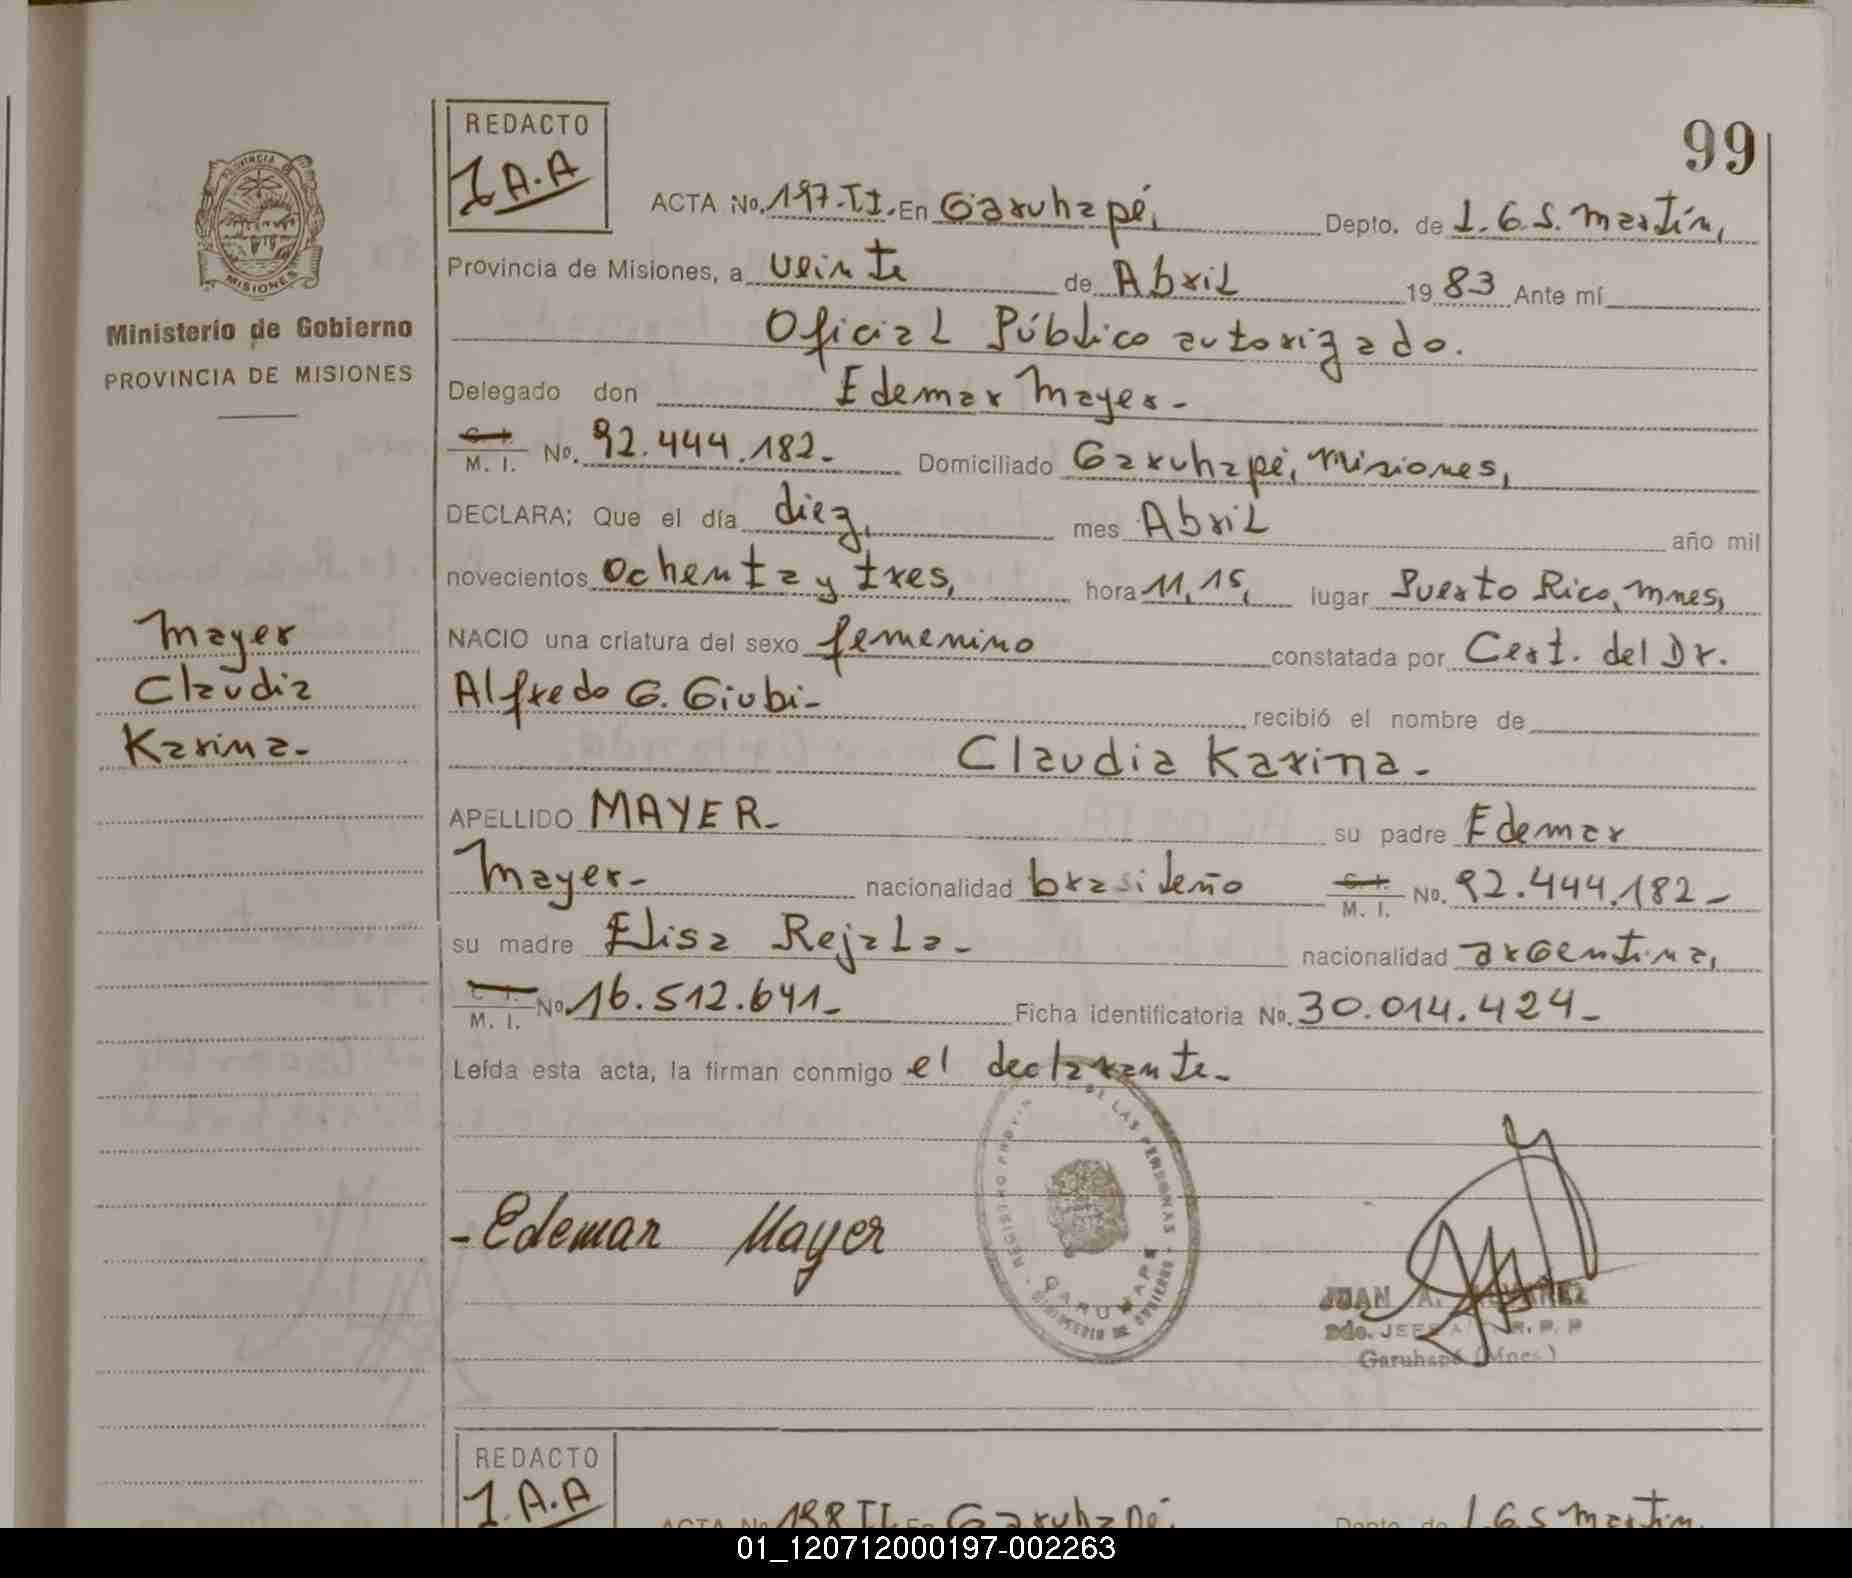 99
REDACTO
1 A.A
PROVINCIA
MISIONES
Ministerio de Gobierno
PROVINCIA DE MISIONES
ACTA No. 197-II. En Garuhapé, Depto. de L.G.S. Martín,
Provincia de Misiones, a veinte de Abril 1983 Ante mí
Oficial Público autorizado.
Delegado don Edemar Mayer-
M. I. No. 92.444.182- Domiciliado Garuhapé, Misiones,
DECLARA; Que el día diez, mes Abril año mil
novecientos ochenta y tres, hora 11,15, lugar Puerto Rico, Mnes,
NACIO una criatura del sexo femenino constatada por Cert. del Dr.
Alfredo G. Giubi- recibió el nombre de
Claudia Karina-
Mayer
Claudia
Karina-
APELLIDO MAYER- su padre Edemar
Mayer- nacionalidad brasileño C. I. M. I. No. 92.444.182-
su madre Elisa Rejala- nacionalidad argentina,
C. I. M. I. No 16.512.641- Ficha identificatoria No. 30.014.424-
Leída esta acta, la firman conmigo el declarante-
REGISTRO PROVIN DE LAS PERSONAS
GARUHAPE
MINISTERIO DE GOBIERNO
-Edemar Mayer
JUAN A.
2do. JEFE R. P. P
Garuhapé (Mnes)
REDACTO
1.A.A
ACTA No 198 II. En Garuhapé, Depto. de L.G.S Martín,
01_120712000197-002263